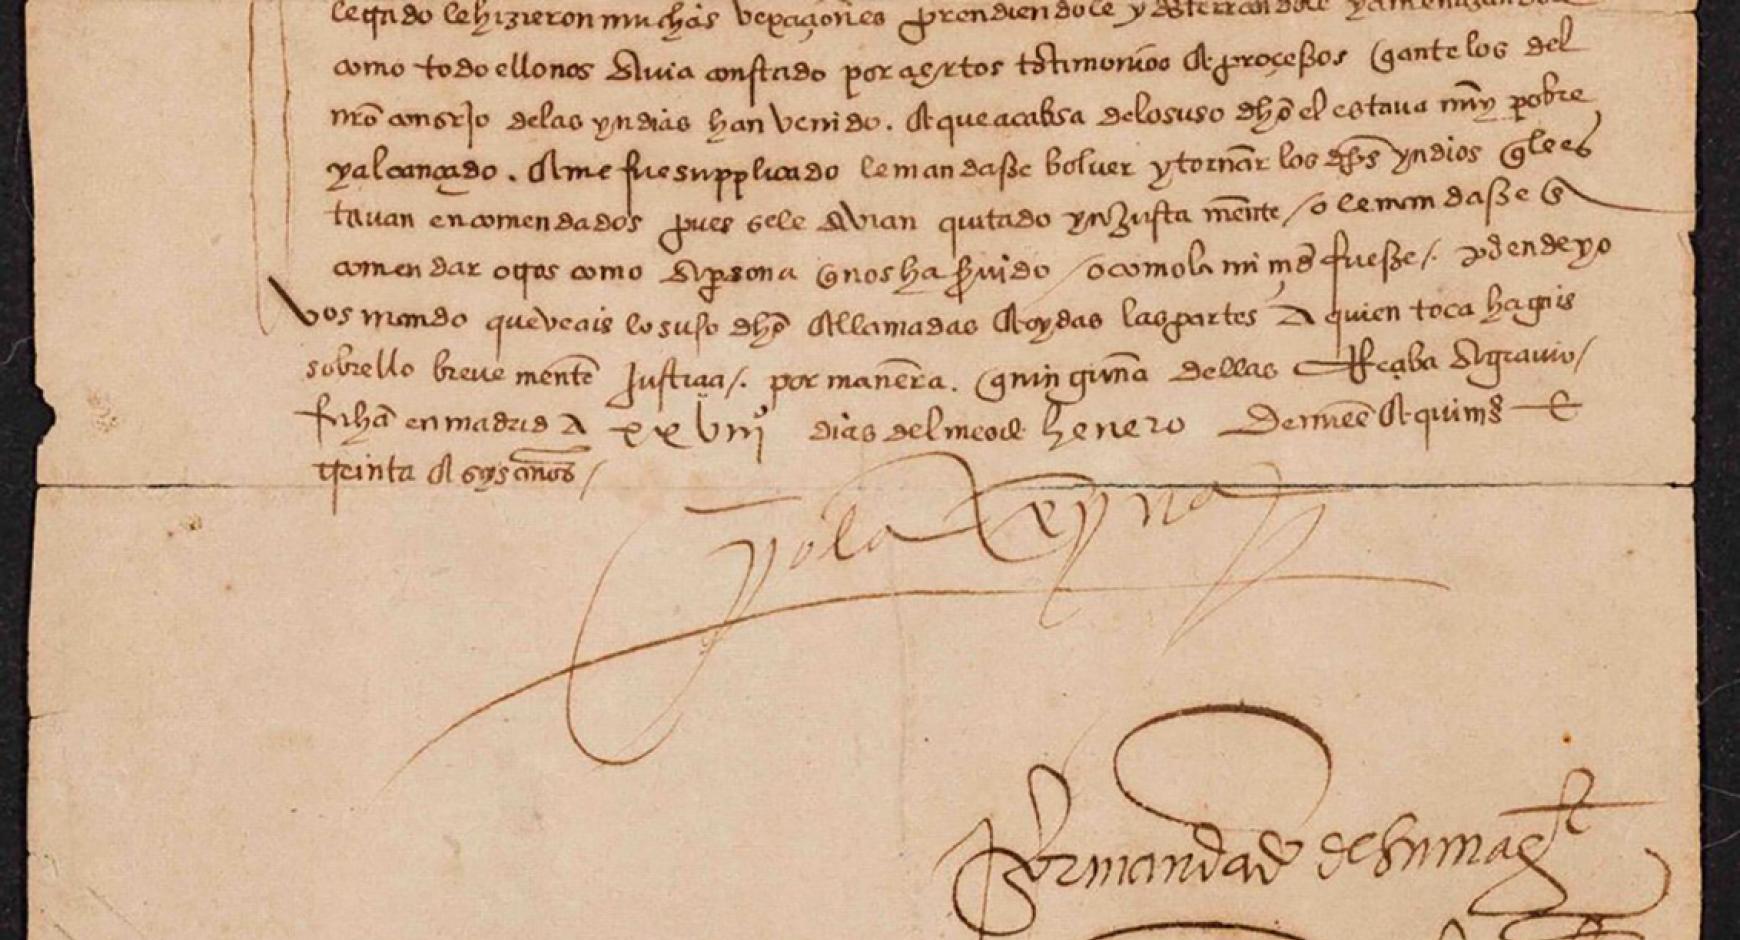 letrado le hizieron muchas vexaçiones prendiendole y desterrandole y amenazandole
como todo ello nos avia constado por çiertos testimonios e proçessos q ante los del
nro consejo de las yndias han venido. e que a cabsa de lo suso dho el estava muy pobre
y alcançado. e me fue supplicado le mandasse bolver y tornar los dhos yndios q le es
tavan encomendados pues se le avian quitado ynjustamente / o le mandasse en
comendar otros como a persona q nos ha servido / o como la mi md fuesse /. por ende yo
vos mando que veais lo suso dho e llamadas e oydas las partes a quien toca hagais
sobrello brevemente justiçia /. por manera. q ninguna dellas rreçiba agravio /
fecha en madrid a xxviii dias del mes de henero de mill e quinis e
treinta e seys años /
yo la Reyna
Por mandado de su mag t